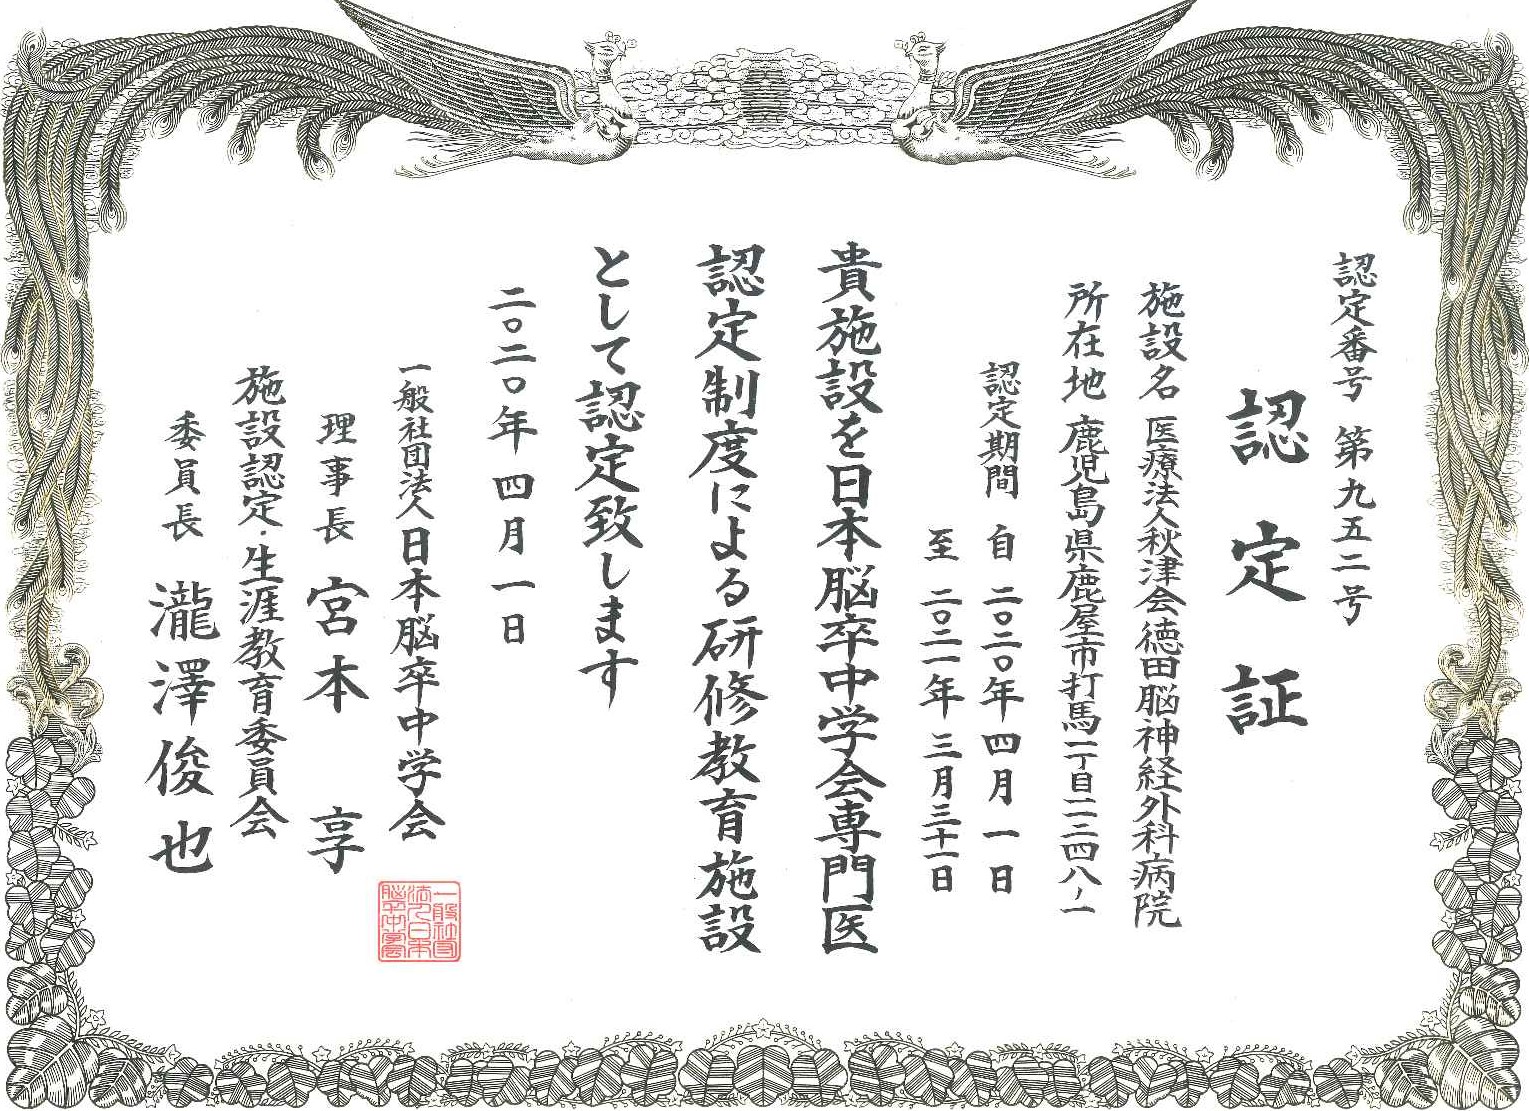 認定番号 第九五二号
認定証
施設名 医療法人秋津会徳田脳神経外科病院
所在地 鹿児島県鹿屋市打馬一丁目一一二四八ノ一
認定期間 自 二〇二〇年四月一日
至 二〇二一年三月三十一日
貴施設を日本脳卒中学会専門医
認定制度による研修教育施設
として認定致します
二〇二〇年四月一日
一般社団法人日本脳卒中学会
理事長 宮本 享
施設認定・生涯教育委員会
委員長 瀧澤俊也
一般社団
法人日本
脳卒中学会